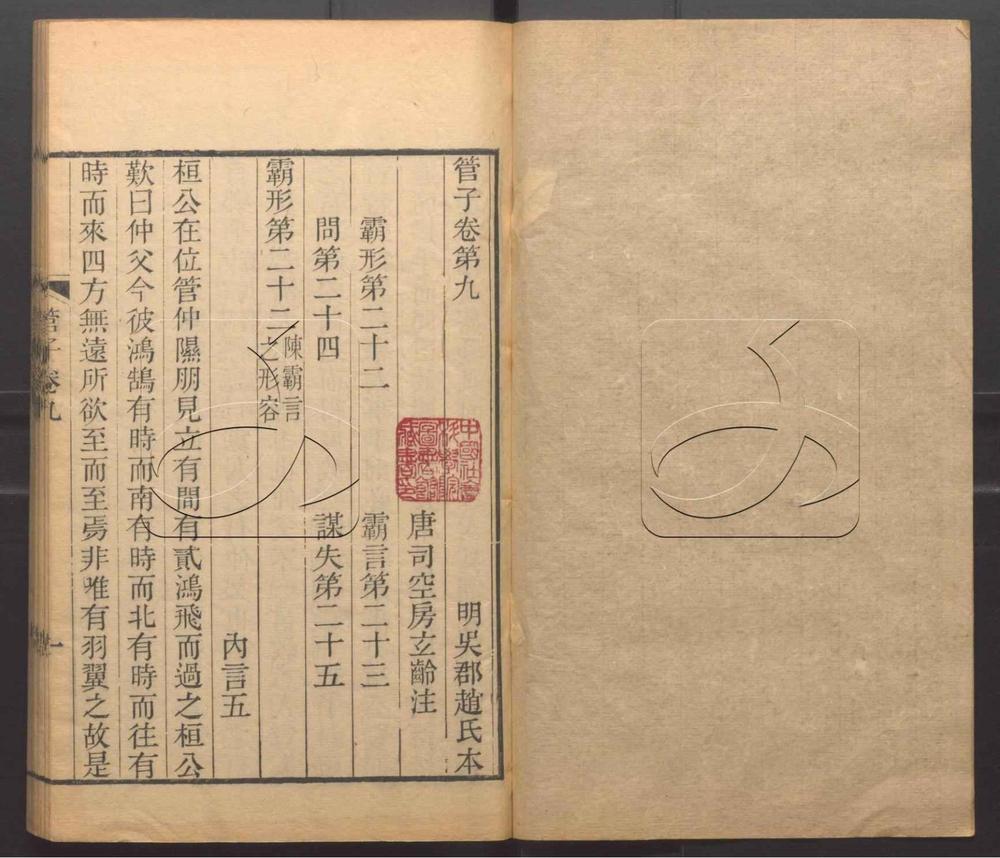 管子卷第九 明吳郡趙氏本
唐司空房玄齡注
霸形第二十二 霸言第二十三
問第二十四 謀失第二十五
霸形第二十二 陳霸言之形容
內言五
桓公在位管仲隰朋見立有間有貳鴻飛而過之桓公
歎曰仲父今彼鴻鵠有時而南有時而北有時而往有
時而來四方無遠所欲至而至焉非唯有羽翼之故是
管子卷九 一
中國社會
科學院
圖書館
藏書